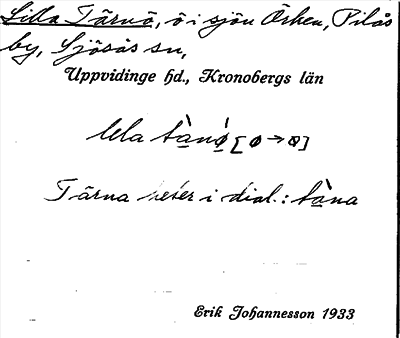 Lilla Tärnö, ö i sjön Örken, Pilås
by, Sjösås sn,
Uppvidinge hd., Kronobergs län
lela tà̠nǿ̠ [ø→ꝏ]
Tärna heter i dial.: tà̠na
Erik Johannesson 1933